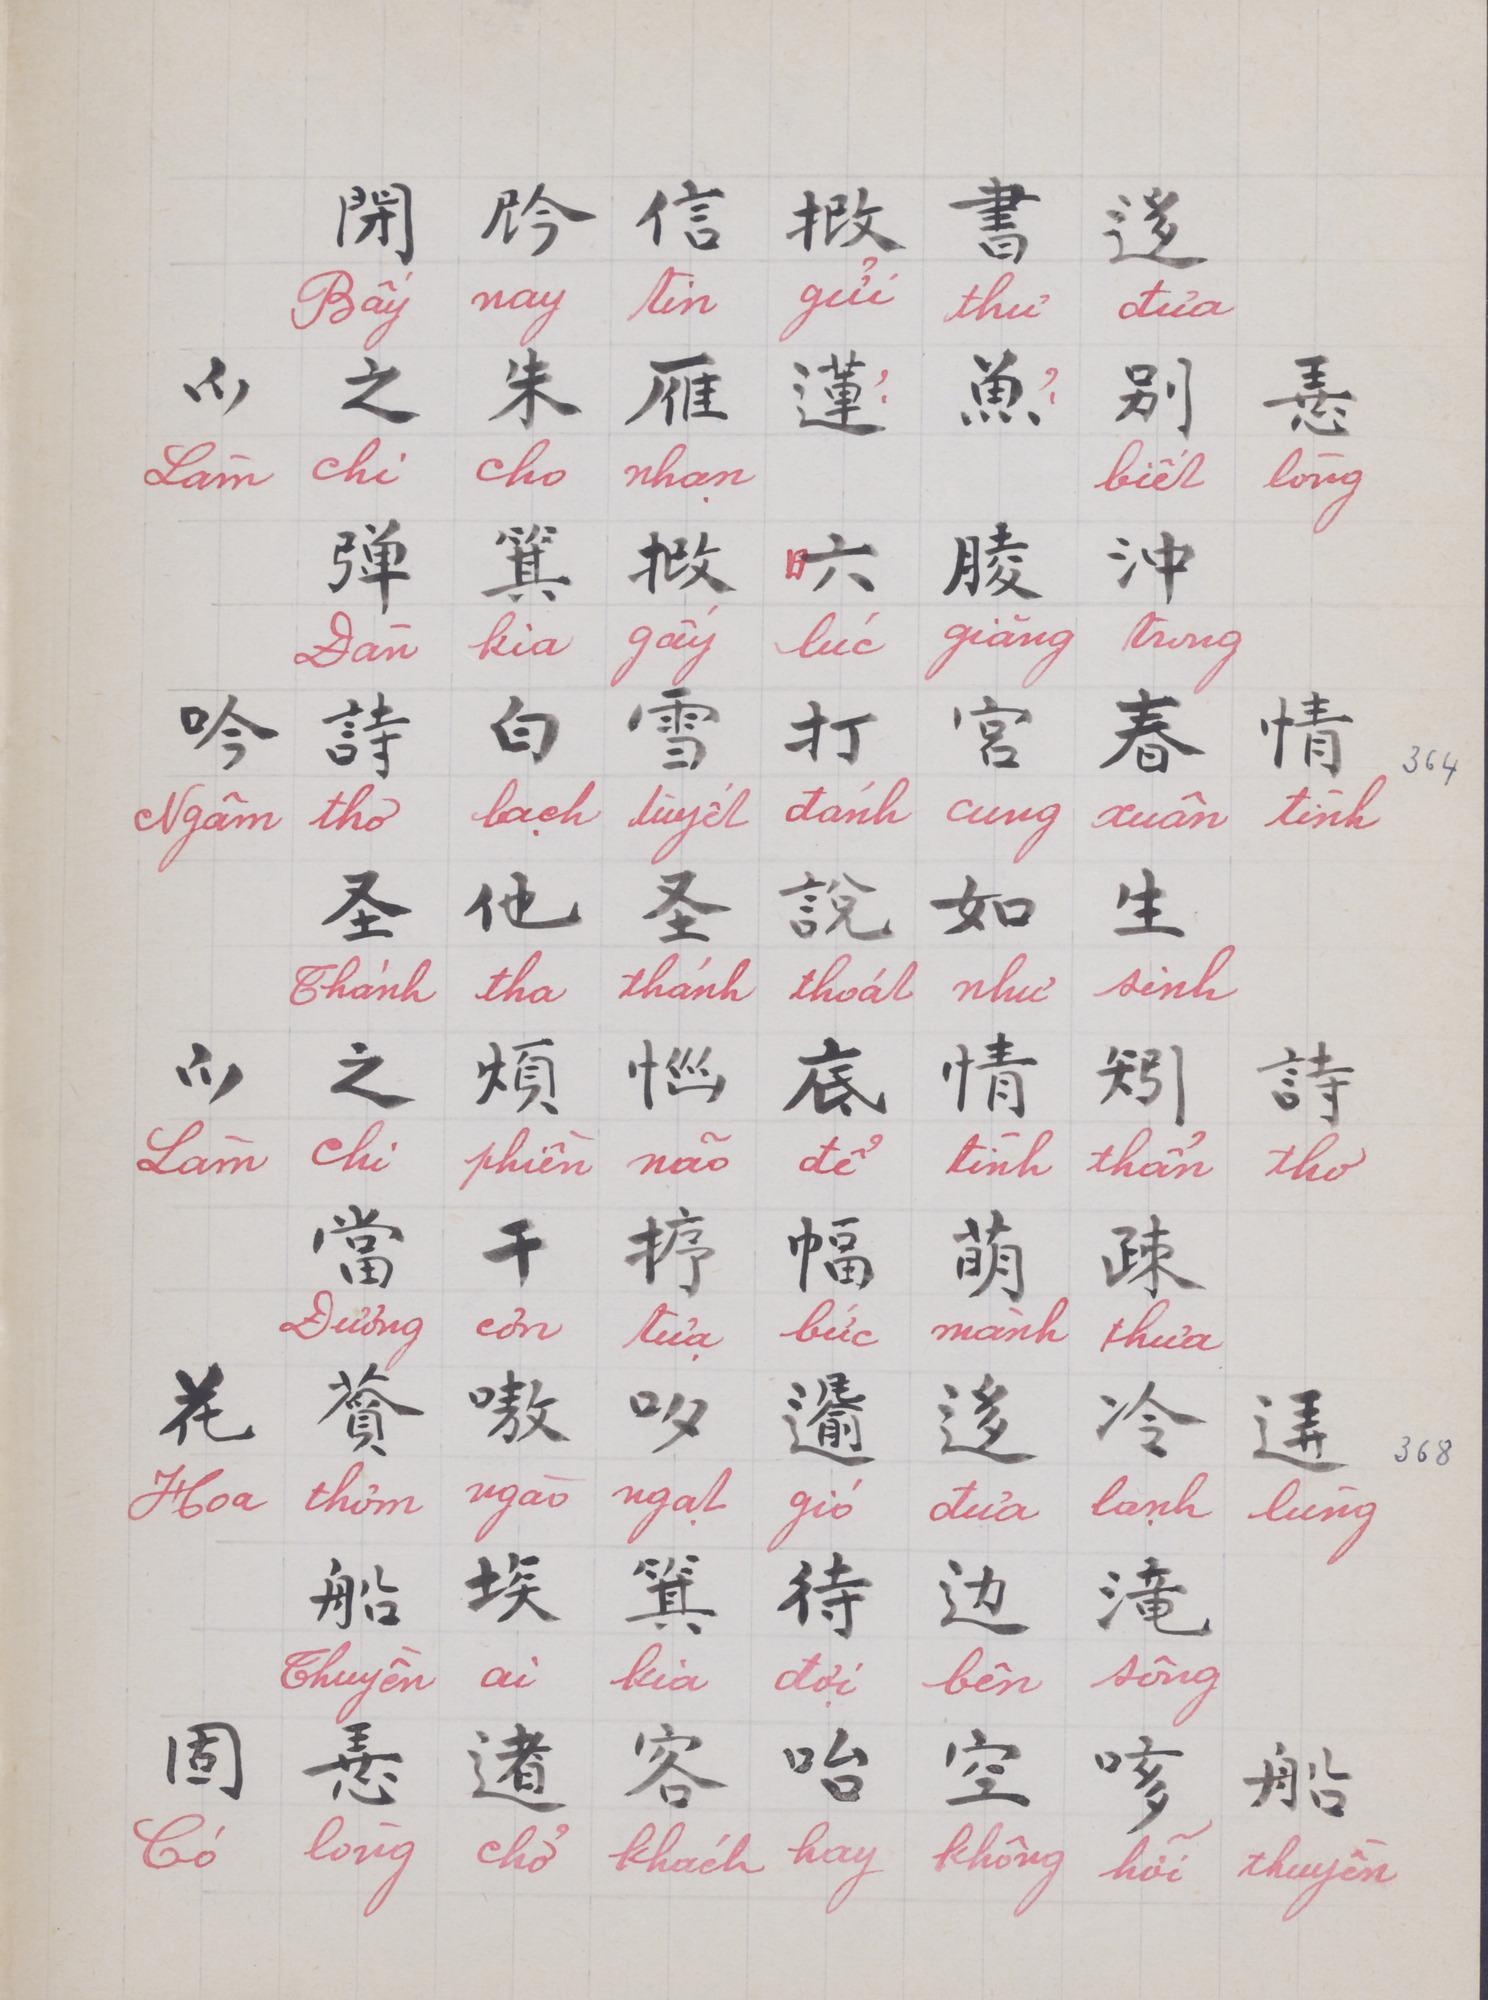 閉 㝵 信 掑 書 迻
Bấy nay tin gửi thư đưa
𪜀 之 朱 雁 蓮 魚 别 𢚸
Làm chi cho nhạn biết lòng
弹 箕 𢭮 六 𦝄 沖
Đàn kia gẩy lúc giăng trong
吟 詩 白 雪 打 宮 春 情 364
Ngâm thơ bạch tuyết đánh cung xuân tình
圣 他 圣 說 如 生
Thánh tha thánh thoát như sinh
之 煩 惱 底 情 矧 詩
Làm chi phiền não để tình thẩn thơ
當 干 幅 萌 疎
Đương cơn tựa bức mành thưa
花 嗷 迻 冷 368
Hoa thơm ngào ngạt gió đưa lạnh lùng
船 埃 箕 待 边 滝
Thuyền ai kia đợi bên sông
固 𢚸 客 咍 空 船
Có lòng chở khách hay không hỡi thuyền